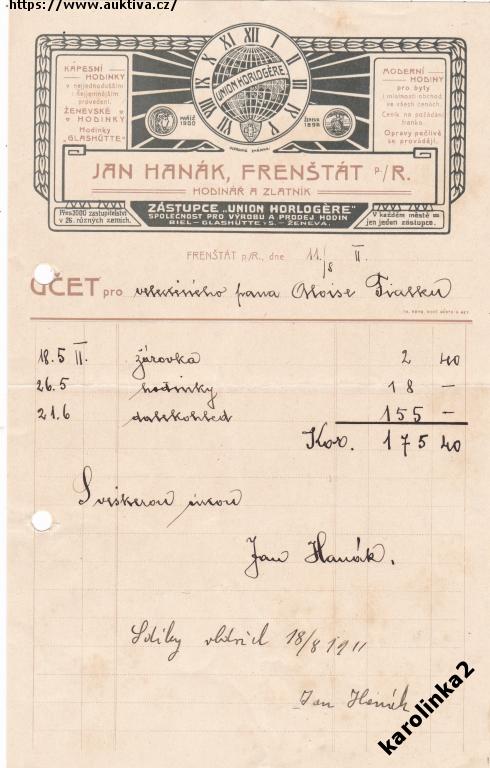 https://www.auktiva.cz/
KAPESNÍ
HODINKY
v nejjednodušším
i nejjemnějším
provedení.
ŽENEVSKÉ
HODINKY
Hodinky
"GLASHÜTTE"
XII I II III V VI VII VIII IX X XI
UNION HORLOGÈRE
PAŘÍŽ
1900
ŽENEVA
1896
MODERNÍ
HODINY
pro byty
i místnosti obchod.
ve všech cenách.
Ceník na požádání
franko.
Opravy pečlivě
se provádějí.
JAN HANÁK, FRENŠTÁT P./R.
HODINÁŘ A ZLATNÍK
ZÁSTUPCE „UNION HORLOGÈRE"
SPOLEČNOST PRO VÝROBU A PRODEJ HODIN
BIEL – GLASHÜTTE i/S. – ŽENEVA.
Přes 2000 zastupitelství
v 26. různých zemích.
V každém městě
jen jeden zástupce.
FRENŠTÁT p./R., dne 11/8 11.
ÚČET pro velectěného pana Aloise
18.5 11. žárovka 2 40
26.5 hodinky 18 –
21.6 dalekohled 155 –
Kor. 175 40
S veškerou úctou
Jan Hanák.
S díky 18/8 1911
Jan Hanák
karolinka2